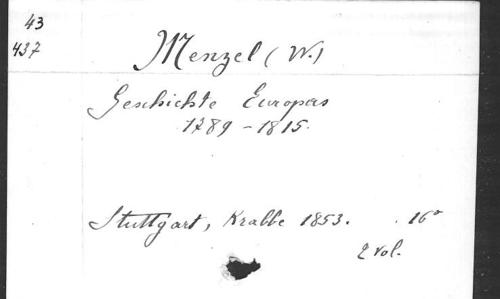 43
437
Menzel (W.)
Geschichte Europas
1789 - 1815.
Stuttgart, Krabbe 1853. . 16°
2 vol.